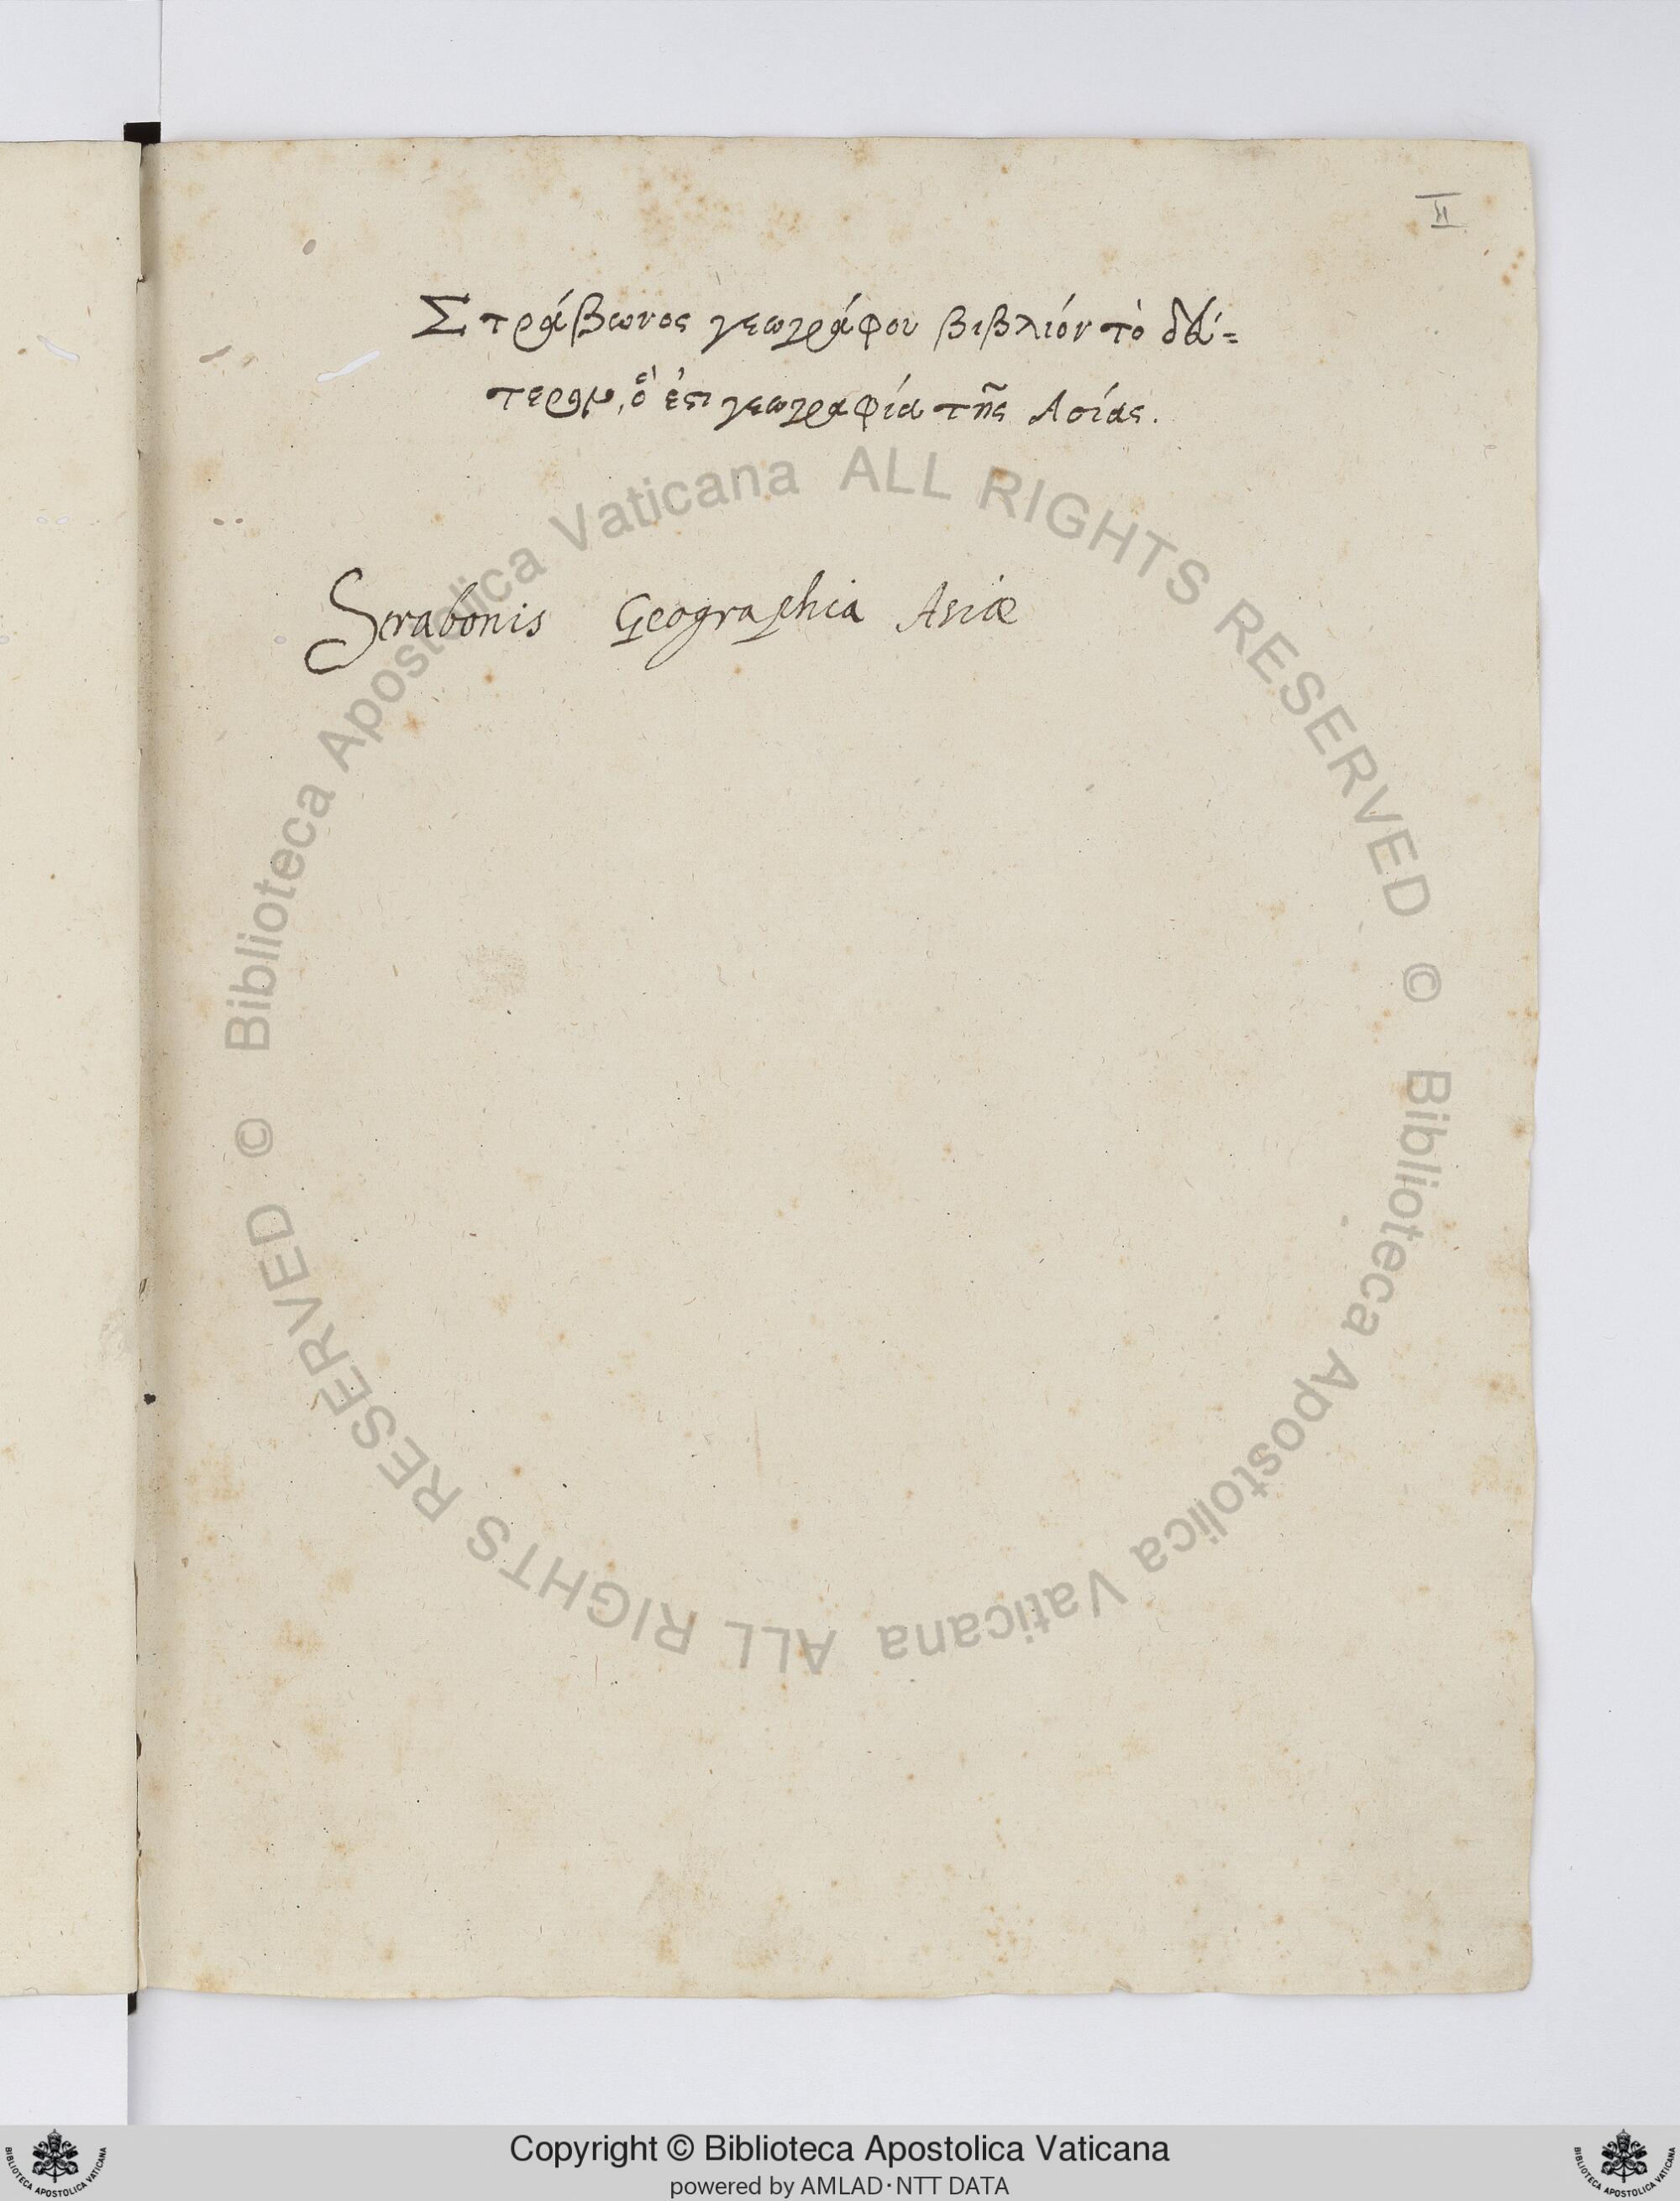 II
Στράβωνος γεωγράφου βιβλιόν τὸ δεύ=
τερον, ὅ ἐστι γεωγραφία τῆς Ασίας.
Strabonis Geographia Asiæ
© Biblioteca Apostolica Vaticana ALL RIGHTS RESERVED
© Biblioteca Apostolica Vaticana ALL RIGHTS RESERVED
Copyright © Biblioteca Apostolica Vaticana
powered by AMLAD·NTT DATA
BIBLIOTECA APOSTOLICA VATICANA
BIBLIOTECA APOSTOLICA VATICANA